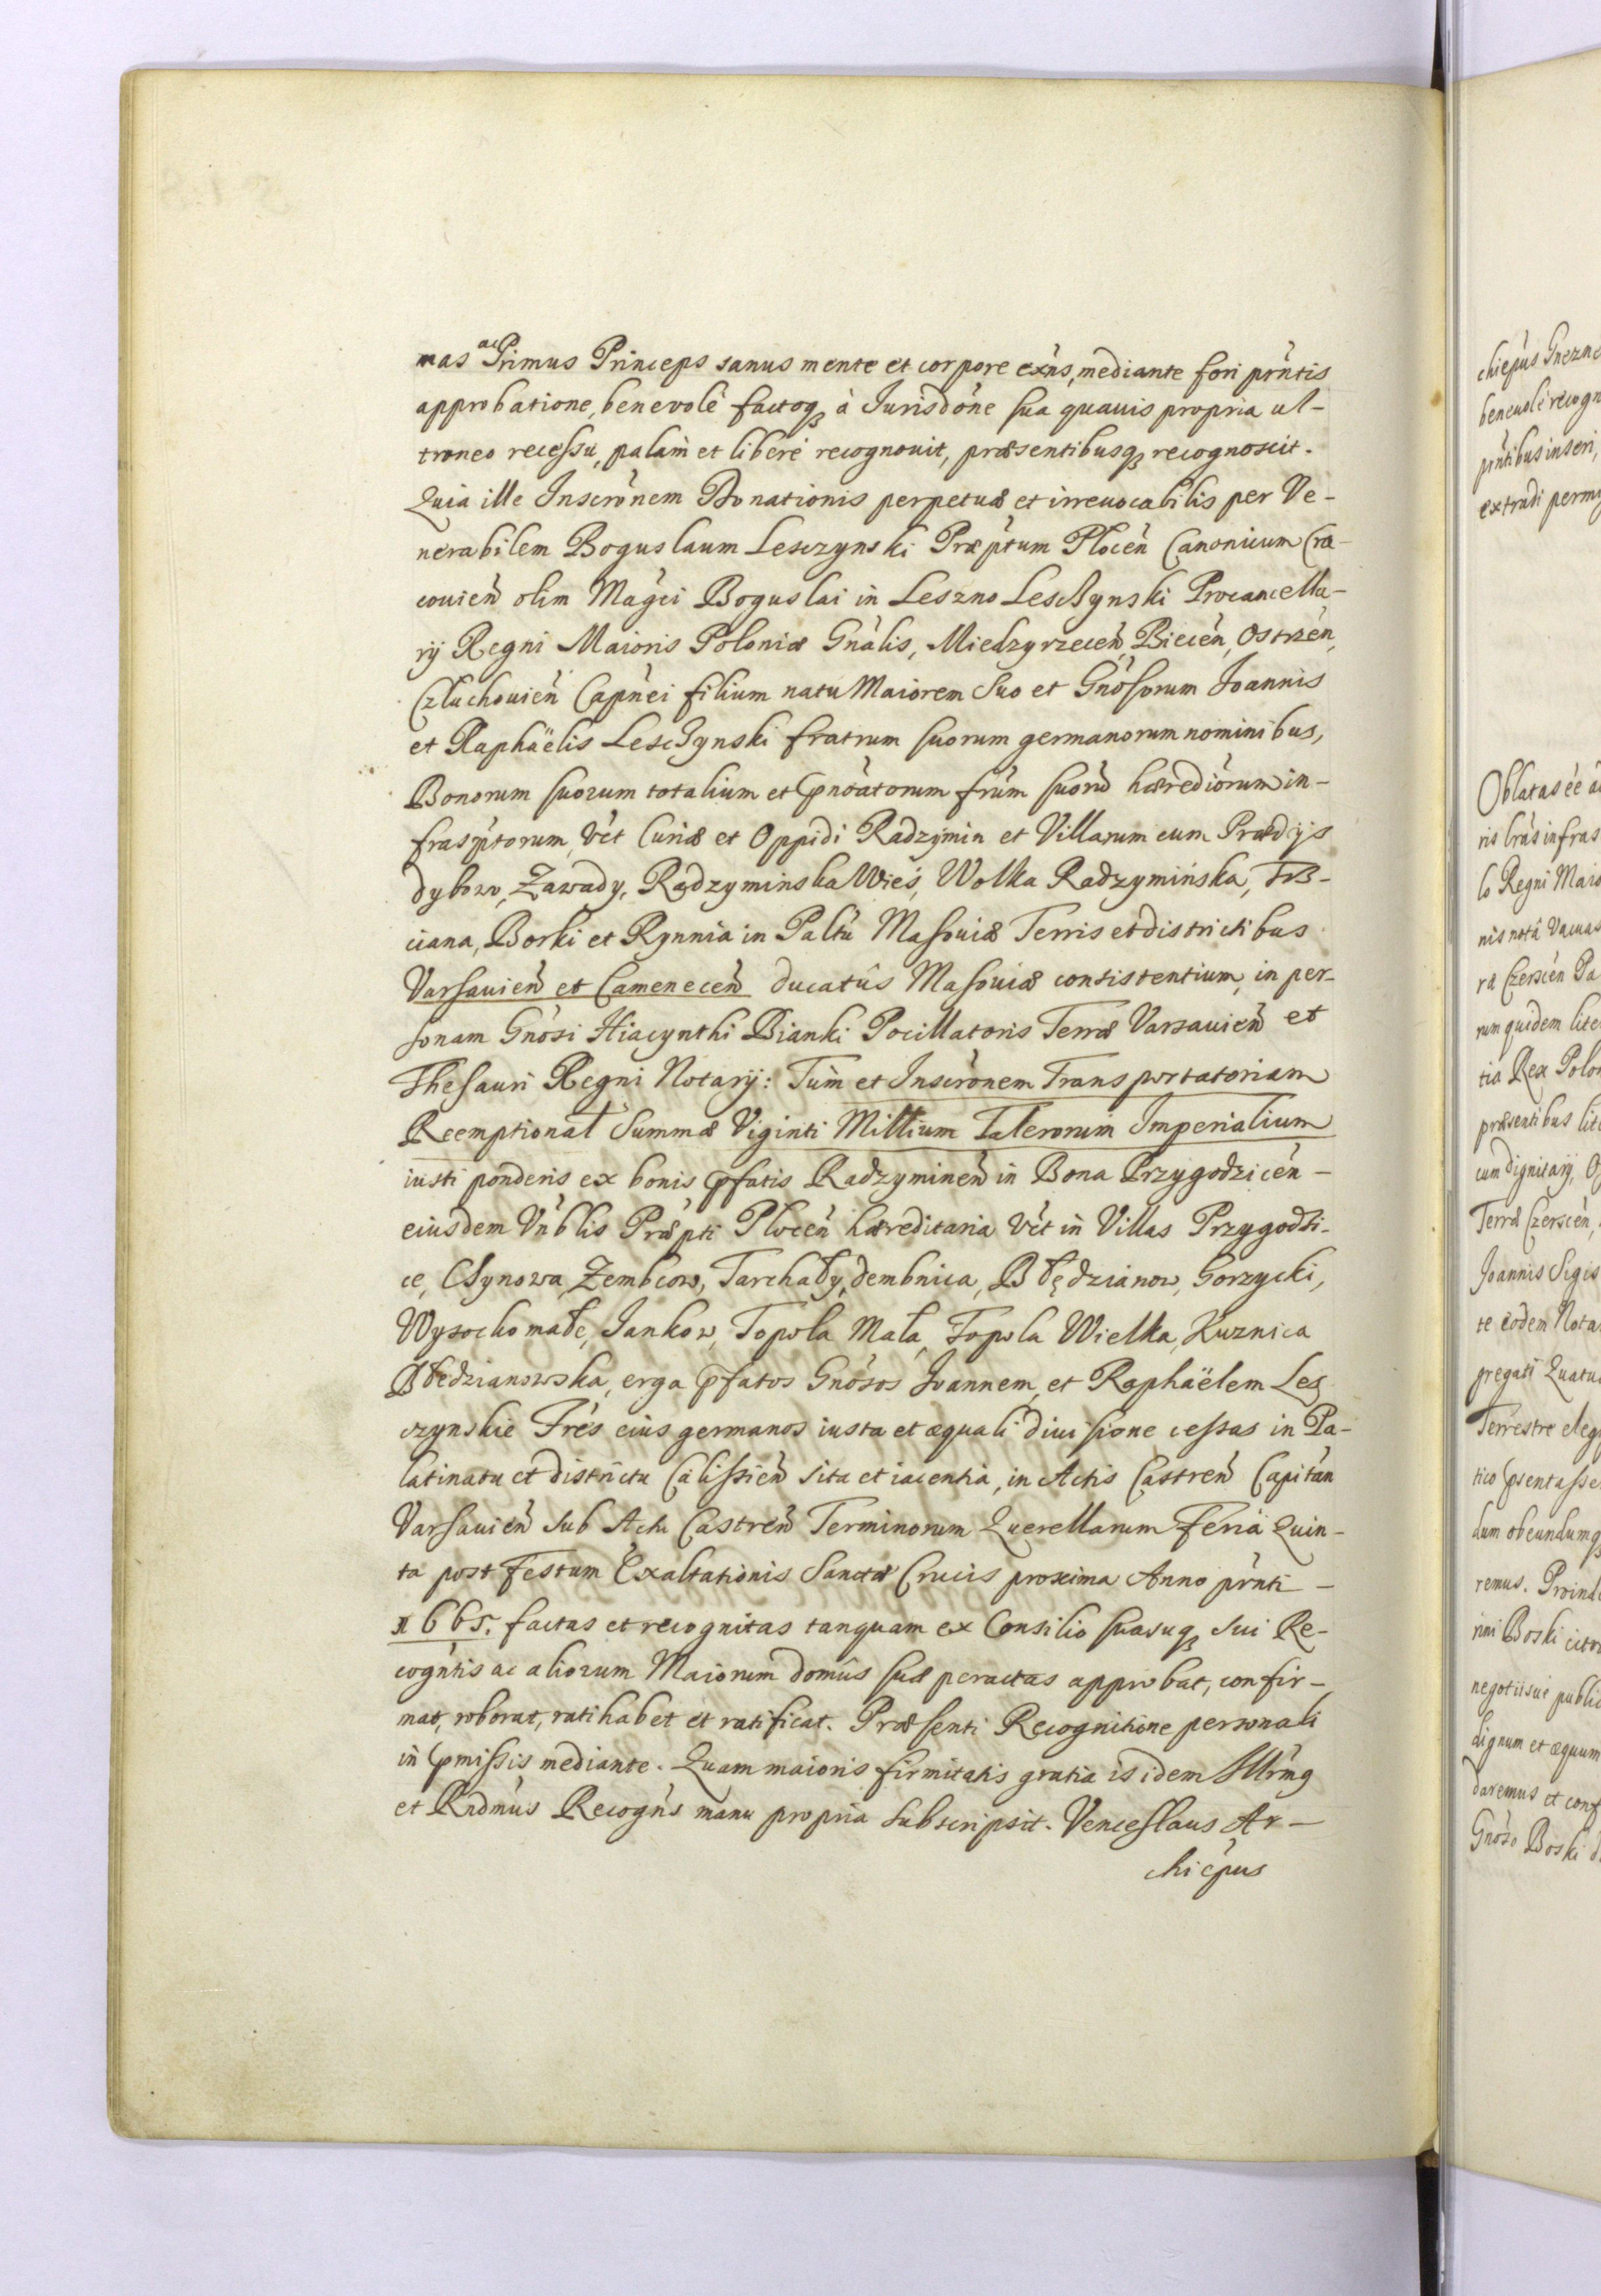 mas ac Primus Princeps sanus mente et corpore exñs, mediante fori pr̃ntis
approbatione, benevole factoq; à Jurisdõne sua quavis propria ul-
troneo recessu, palam et libere recognouit, præsentibusq; recognoscit.
Quia ille Inscrõnem Donationis perpetuæ et irreuocabilis per Ve-
nerabilem Boguslaum Lesczynski Præp̃tum Plocen̄ Canonicum Cra-
couien̄ olim Mag̃ci Boguslai in Leszno Lesczynski Procancella-
rij Regni Maioris Poloniæ Gñalis, Miedzyrzecen̄, Biecen̄, Ostrzen̄,
Czluchouien̄ Capñei filium natu Maiorem suo et Gñosorum Joannis
et Raphaëlis Lesczynski fratrum suorum germanorum nominibus,
Bonorum suorum totalium et p̃noãtorum frũm suorũ hærediõrum in-
frasp̃torum, vc̃t Curiæ et Oppidi Radzymin et Villarum cum Prædijs
dybow, Zawady, Radzyminska Wieś, Wolka Radzymińska,
ciana, Borki et Rynnia in Paltũ Masouiæ Terris et districtibus
Varsauien̄ et Camenecen̄ ducatûs Masouiæ consistentium, in per-
sonam Gñosi Hiacynthi Bianki Pocillatoris Terræ Varsauien̄ et
Thesauri Regni Notarij: Tum et Inscrõnem Transportatoriam
Reemptional̃ Summæ Viginti Millium Talerorum Imperialium
iusti ponderis ex bonis p̃fatis Radzyminen̄ in Bona Przygodzicen̄ -
eiusdem Vñblis Præp̃ti Plocen̄ hæreditaria vc̃t in Villas Przygodzi-
ce, Chynowa, Zembcow, Tarchały, dembnica, Błędzianow, Gorzycki,
Wysocko małe, Jankow, Topola Mała, Topola Wielka, Kuznica
Błedzianowska, erga p̃fatos Gñosos Joannem, et Raphaëlem Les
czynskie Frẽs eius germanos iusta et æquali diuisione cessas in Pa-
latinatu et districtu Calissien̄ sita et iacentia, in Actis Castren̄ Capitan̄
Varsauien̄ sub Actu Castren̄ Terminorum Querellarum Feria Quin-
ta post Festum Exaltationis Sanctæ Crucis proxima Anno pr̃nti -
1665. factas et recognitas tanquam ex Consilio suasuq; sui Re-
cogñtis ac aliorum Maiorum domûs suæ peractas approbat, confir-
mat, roborat, ratihabet et ratificat. Præsenti Recognitione personali
in p̃missis mediante. Quam maioris firmitatis gratia is idem Illr̃mg
et Rñdmus Recogñs manu propria subscripsit. Venceslaus Ar-
chiẽpus
chiẽpus Gnezn
beneuole recogn
pr̃ntibus inseri,
extradi permi
Oblatas
ris lr̃as infras
lo Regni Maio
nis notã Vacuas
ra Czerscen̄ Pa
rum quidem lite
tia Rex Polon
præsentibus lit
cum dignitarij, O
Terræ Czerscen̄,
Joannis Sigis
te eodem Nota
gregati Quatu
Terrestre eleg
tico p̃sentasse
dum obeundumq;
remus. Proind
rini Boski
negotii sui public
dignum et æquum
daremus et conf
Gñoso Boski